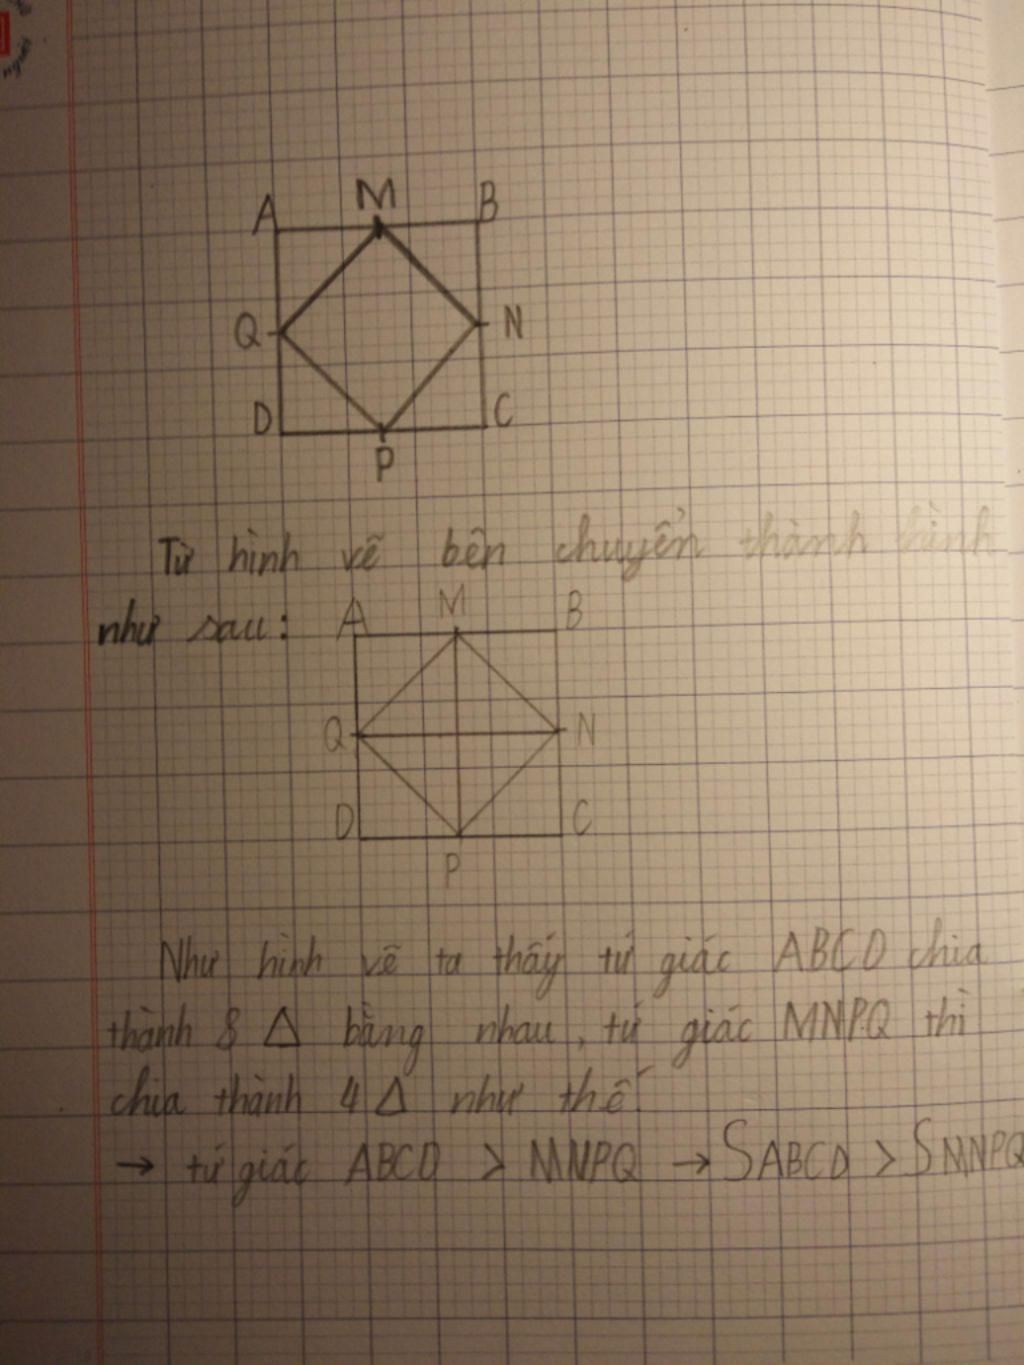 người
A M B
Q N
D C
P
Từ hình vẽ bên chuyển thành hình
như sau:
A M B
Q N
D C
P
Như hình vẽ ta thấy tứ giác ABCD chia
thành 8 Δ bằng nhau, tứ giác MNPQ thì
chia thành 4 Δ như thế
→ tứ giác ABCD > MNPQ → SABCD > SMNPQ